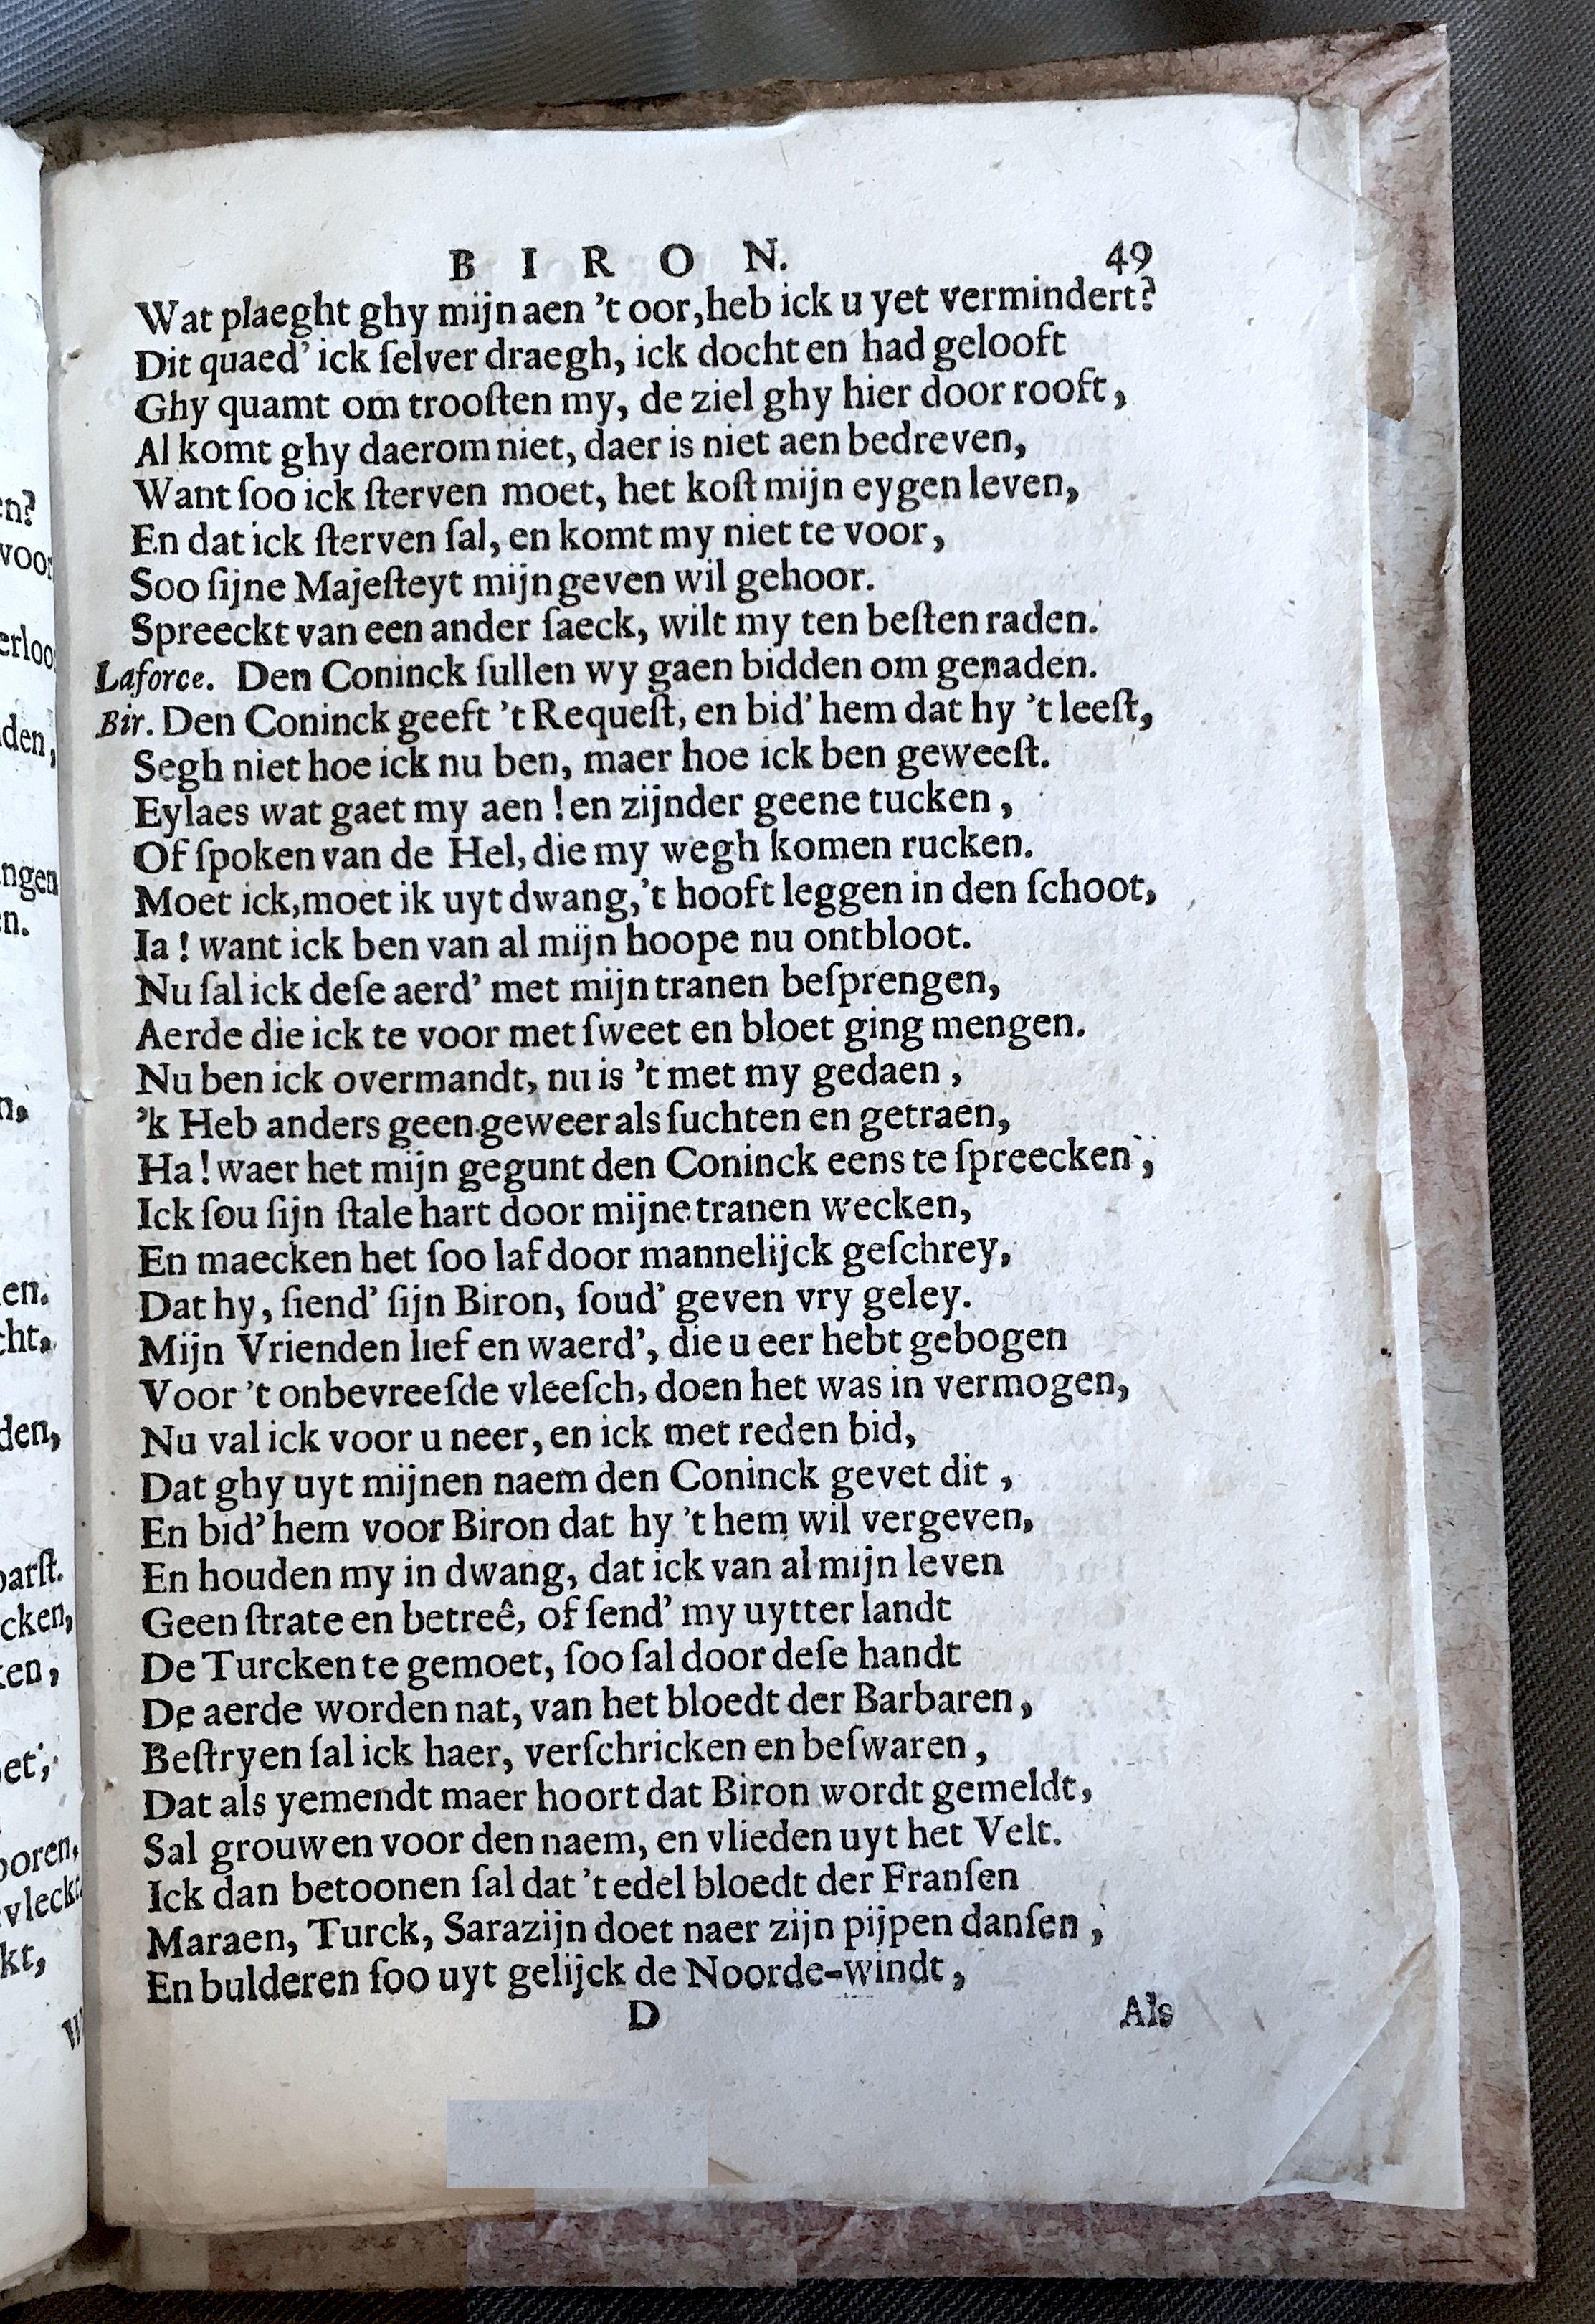 BIRON. 49
Wat plaeght ghy mijn aen 't oor, heb ick u yet vermindert?
Dit quaed' ick ſelver draegh, ick docht en had gelooft
Ghy quamt om trooſten my, de ziel ghy hier door rooft,
Al komt ghy daerom niet, daer is niet aen bedreven,
Want ſoo ick ſterven moet, het koſt mijn eygen leven,
En dat ick ſterven ſal, en komt my niet te voor,
Soo ſijne Majeſteyt mijn geven wil gehoor.
Spreeckt van een ander ſaeck, wilt my ten beſten raden.
Laforce. Den Coninck ſullen wy gaen bidden om genaden.
Bir. Den Coninck geeft 't Requeſt, en bid' hem dat hy 't leeſt,
Segh niet hoe ick nu ben, maer hoe ick ben geweeſt.
Eylaes wat gaet my aen! en zijnder geene tucken,
Of ſpoken van de Hel, die my wegh komen rucken.
Moet ick, moet ik uyt dwang, 't hooft leggen in den ſchoot,
Ia! want ick ben van al mijn hoope nu ontbloot.
Nu ſal ick deſe aerd' met mijn tranen beſprengen,
Aerde die ick te voor met ſweet en bloet ging mengen.
Nu ben ick overmandt, nu is 't met my gedaen,
'k Heb anders geen geweer als ſuchten en getraen,
Ha! waer het mijn gegunt den Coninck eens te ſpreecken,
Ick ſou ſijn ſtale hart door mijne tranen wecken,
En maecken het ſoo laf door mannelijck geſchrey,
Dat hy, ſiend' ſijn Biron, ſoud' geven vry geley.
Mijn Vrienden lief en waerd', die u eer hebt gebogen
Voor 't onbevreeſde vleeſch, doen het was in vermogen,
Nu val ick voor u neer, en ick met reden bid,
Dat ghy uyt mijnen naem den Coninck gevet dit,
En bid' hem voor Biron dat hy 't hem wil vergeven,
En houden my in dwang, dat ick van al mijn leven
Geen ſtrate en betreê, of ſend' my uytter landt
De Turcken te gemoet, ſoo ſal door deſe handt
De aerde worden nat, van het bloedt der Barbaren,
Beſtryen ſal ick haer, verſchricken en beſwaren,
Dat als yemendt maer hoort dat Biron wordt gemeldt,
Sal grouwen voor den naem, en vlieden uyt het Velt.
Ick dan betoonen ſal dat 't edel bloedt der Franſen
Maraen, Turck, Sarazijn doet naer zijn pijpen danſen,
En bulderen ſoo uyt gelijck de Noorde-windt,
D Als